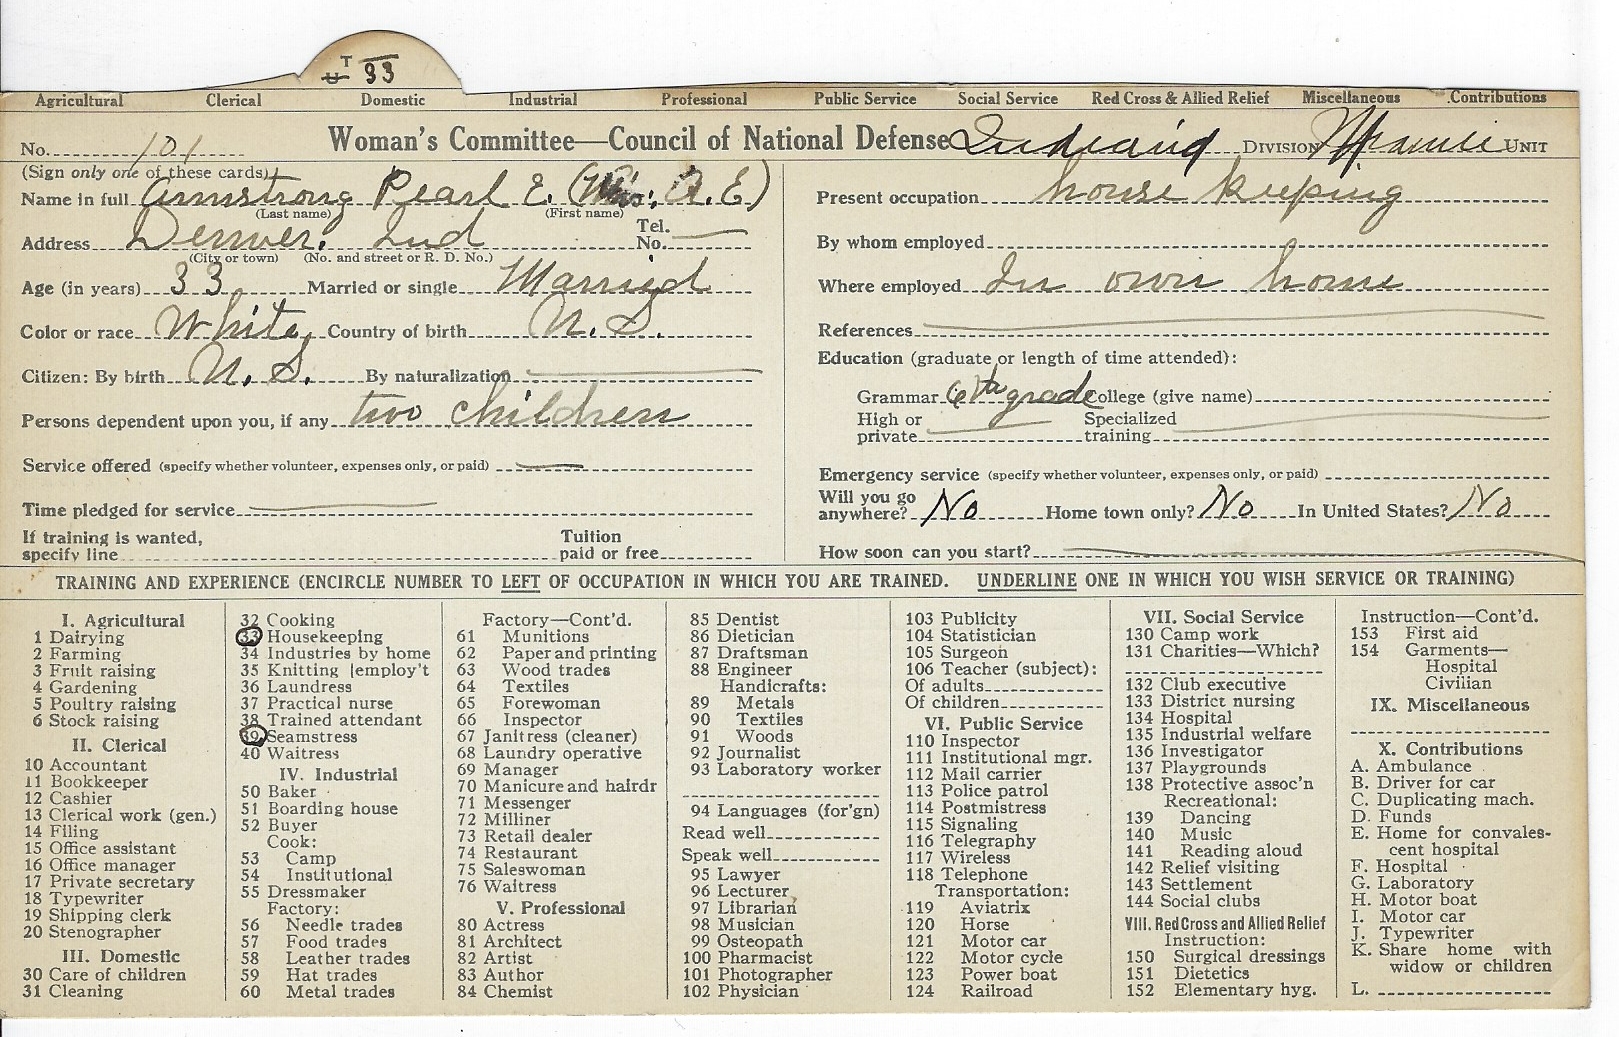 T
U 33
Agricultural Clerical Domestic Industrial Professional Public Service Social Service Red Cross & Allied Relief Miscellaneous Contributions
No. 101 Woman's Committee—Council of National Defense Indiana DIVISION Miami UNIT
(Sign only one of these cards)
Name in full Armstrong Pearl E. (Mrs. A. E)
(Last name) (First name)
Address Denver, Ind Tel. No.
(City or town) (No. and street or R. D. No.)
Age (in years) 33 Married or single Married
Color or race White Country of birth U. S.
Citizen: By birth U. S. By naturalization
Persons dependent upon you, if any two children
Service offered (specify whether volunteer, expenses only, or paid)
Time pledged for service
If training is wanted, specify line Tuition paid or free
Present occupation house keeping
By whom employed
Where employed In own home
References
Education (graduate or length of time attended):
Grammar 6th grade College (give name)
High or private Specialized training
Emergency service (specify whether volunteer, expenses only, or paid)
Will you go anywhere? No Home town only? No In United States? No
How soon can you start?
TRAINING AND EXPERIENCE (ENCIRCLE NUMBER TO LEFT OF OCCUPATION IN WHICH YOU ARE TRAINED. UNDERLINE ONE IN WHICH YOU WISH SERVICE OR TRAINING)
I. Agricultural
1 Dairying
2 Farming
3 Fruit raising
4 Gardening
5 Poultry raising
6 Stock raising
II. Clerical
10 Accountant
11 Bookkeeper
12 Cashier
13 Clerical work (gen.)
14 Filing
15 Office assistant
16 Office manager
17 Private secretary
18 Typewriter
19 Shipping clerk
20 Stenographer
III. Domestic
30 Care of children
31 Cleaning
32 Cooking
33 Housekeeping
34 Industries by home
35 Knitting [employ't
36 Laundress
37 Practical nurse
38 Trained attendant
39 Seamstress
40 Waitress
IV. Industrial
50 Baker
51 Boarding house
52 Buyer
Cook:
53 Camp
54 Institutional
55 Dressmaker
Factory:
56 Needle trades
57 Food trades
58 Leather trades
59 Hat trades
60 Metal trades
Factory—Cont'd.
61 Munitions
62 Paper and printing
63 Wood trades
64 Textiles
65 Forewoman
66 Inspector
67 Janitress (cleaner)
68 Laundry operative
69 Manager
70 Manicure and hairdr
71 Messenger
72 Milliner
73 Retail dealer
74 Restaurant
75 Saleswoman
76 Waitress
V. Professional
80 Actress
81 Architect
82 Artist
83 Author
84 Chemist
85 Dentist
86 Dietician
87 Draftsman
88 Engineer
Handicrafts:
89 Metals
90 Textiles
91 Woods
92 Journalist
93 Laboratory worker
94 Languages (for'gn)
Read well
Speak well
95 Lawyer
96 Lecturer
97 Librarian
98 Musician
99 Osteopath
100 Pharmacist
101 Photographer
102 Physician
103 Publicity
104 Statistician
105 Surgeon
106 Teacher (subject):
Of adults
Of children
VI. Public Service
110 Inspector
111 Institutional mgr.
112 Mail carrier
113 Police patrol
114 Postmistress
115 Signaling
116 Telegraphy
117 Wireless
118 Telephone
Transportation:
119 Aviatrix
120 Horse
121 Motor car
122 Motor cycle
123 Power boat
124 Railroad
VII. Social Service
130 Camp work
131 Charities—Which?
132 Club executive
133 District nursing
134 Hospital
135 Industrial welfare
136 Investigator
137 Playgrounds
138 Protective assoc'n
Recreational:
139 Dancing
140 Music
141 Reading aloud
142 Relief visiting
143 Settlement
144 Social clubs
VIII. Red Cross and Allied Relief
Instruction:
150 Surgical dressings
151 Dietetics
152 Elementary hyg.
Instruction—Cont'd.
153 First aid
154 Garments—
Hospital
Civilian
IX. Miscellaneous
X. Contributions
A. Ambulance
B. Driver for car
C. Duplicating mach.
D. Funds
E. Home for convales-
cent hospital
F. Hospital
G. Laboratory
H. Motor boat
I. Motor car
J. Typewriter
K. Share home with
widow or children
L.